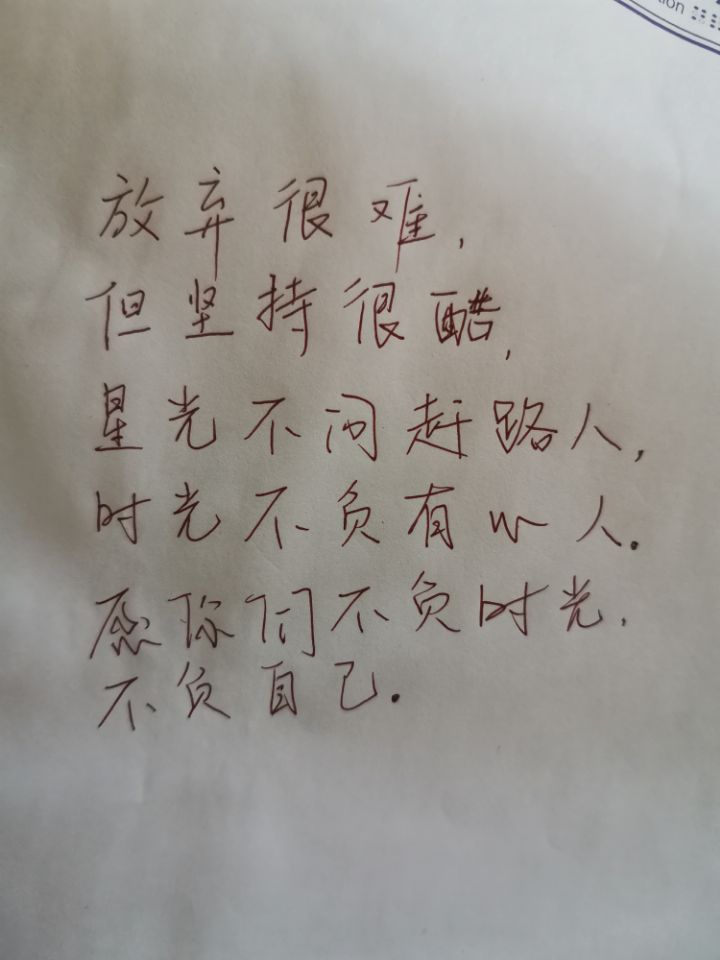 放弃很难,
但坚持很酷,
星光不问赶路人,
时光不负有心人.
愿你们不负时光,
不负自己.